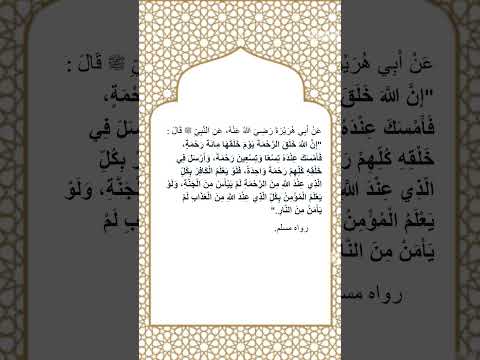 عَنْ أَبِي هُرَيْرَةَ رَضِيَ اللَّهُ عَنْهُ، عَنِ النَّبِيِّ ﷺ قَالَ :
"إِنَّ اللَّهَ خَلَقَ الرَّحْمَةَ يَوْمَ خَلَقَهَا مِائَةَ رَحْمَةٍ،
فَأَمْسَكَ عِنْدَهُ تِسْعًا وَتِسْعِينَ رَحْمَةً، وَأَرْسَلَ فِي
خَلْقِهِ كُلِّهِمْ رَحْمَةً وَاحِدَةً، فَلَوْ يَعْلَمُ الْكَافِرُ بِكُلِّ
الَّذِي عِنْدَ اللَّهِ مِنَ الرَّحْمَةِ لَمْ يَيْأَسْ مِنَ الْجَنَّةِ، وَلَوْ
يَعْلَمُ الْمُؤْمِنُ بِكُلِّ الَّذِي عِنْدَ اللَّهِ مِنَ الْعَذَابِ لَمْ
يَأْمَنْ مِنَ النَّارِ."
رواه مسلم.